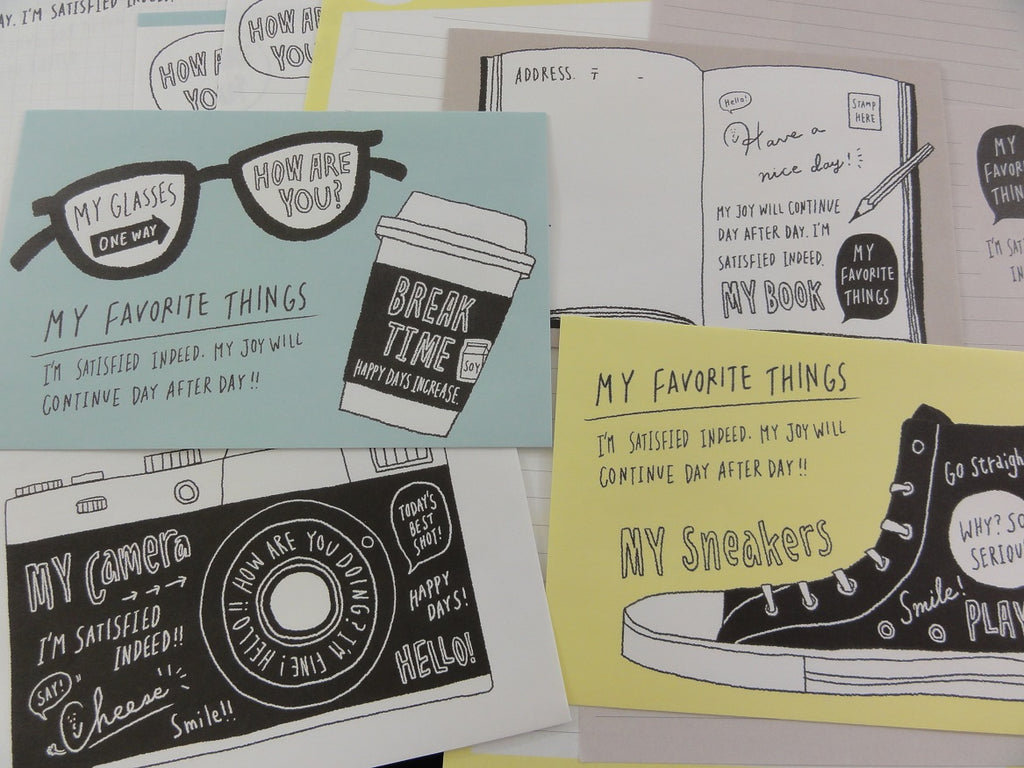 AY. I'M SATISFIED
HOW A
YO
HOW AR
YOU
MY GLASSES
ONE WAY
HOW ARE
YOU?
MY FAVORITE THINGS
I'M SATISFIED INDEED. MY JOY WILL
CONTINUE DAY AFTER DAY!!
BREAK
TIME
SOY
HAPPY DAYS INCREASE.
ADDRESS. 〒 -
Hello!
STAMP
HERE
Have a
nice day!
MY JOY WILL CONTINUE
DAY AFTER DAY. I'M
SATISFIED INDEED.
MY BOOK
MY
FAVORITE
THINGS
MY
FAVOR
THIN
I'M SAT
IN
MY FAVORITE THINGS
I'M SATISFIED INDEED. MY JOY WILL
CONTINUE DAY AFTER DAY!!
MY Sneakers
Go Straigh
WHY? SO
SERIOU
Smile!
PLAY
MY Camera
I'M SATISFIED
INDEED!!
SAY!
Cheese
Smile!!
HOW ARE YOU DOING? I'M FINE! HELLO!!
TODAY'S
BEST
SHOT!
HAPPY
DAYS!
HELLO!